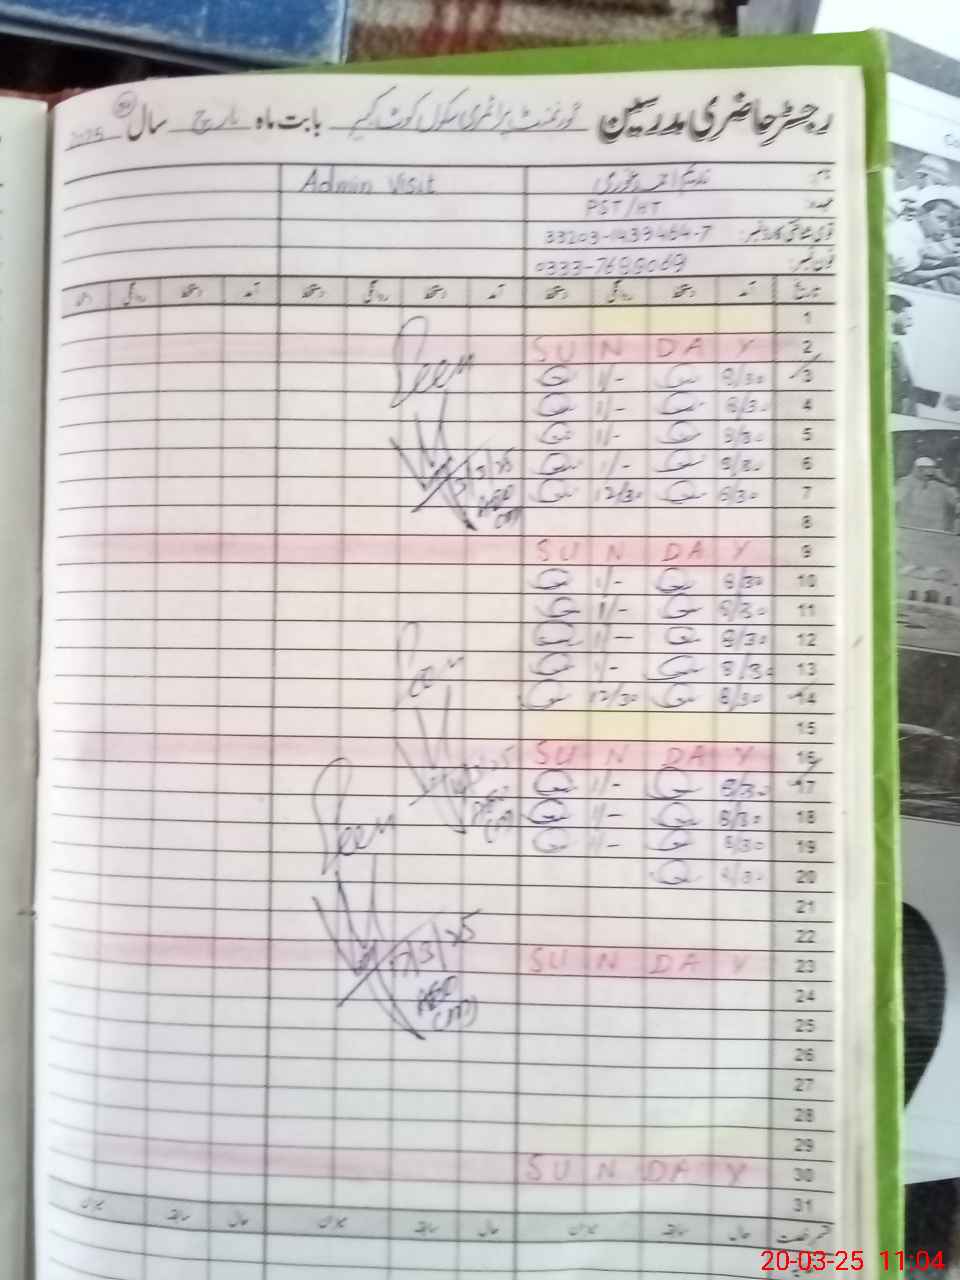 رجسٹر حاضری مدرسین گورنمنٹ پرائمری سکول کوٹ بابت ماہ مارچ سال 2025
نام
Admin Visit
عہدہ PST/HT
قومی شناختی کارڈ نمبر:
فون نمبر:
تاریخ آمد دستخط روانگی دستخط آمد دستخط روانگی دستخط آمد دستخط روانگی دستخط
1
2 SUNDAY
3 8/30 1/-
4 8/30 1/-
5 8/30 1/-
6 8/30 1/-
7 8/30 12/30
8
9 SUNDAY
10 8/30 1/-
11 8/30 1/-
12 8/30 1/-
13 8/30 1/-
14 8/30 12/30
15
16 SUNDAY
17 8/30 1/-
18 8/30 1/-
19 8/30 1/-
20 8/30
21
22
23 SUNDAY
24
25
26
27
28
29
30 SUNDAY
31
Seen
AEO
Seen
AEO
Seen
17/3/25
AEO
حال سابقہ میزان حال سابقہ میزان حال سابقہ میزان
20-03-25 11:04